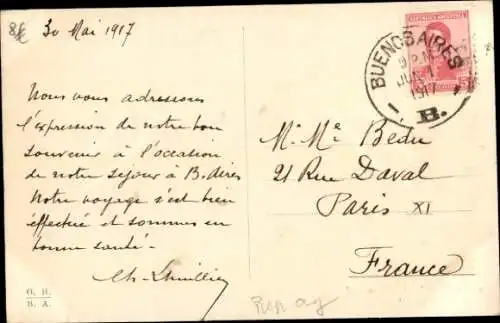 30 Mai 1917
Nous vous adressons
l'expression de notre bon
souvenir à l'occasion
de notre séjour à B. Aires
Notre voyage s'est bien
effectué et sommes en
bonne santé -
Ch. Lhuillier
G. H.
B. A.
REPUBLICA ARGENTINA
5
BUENOS AIRES
9 P.M.
JUN 1
1917
B.
Mr Me
21 Rue Daval
Paris XI
France